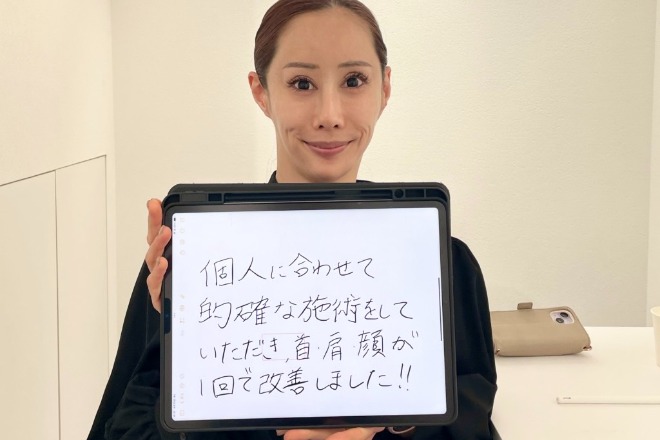 個人に合わせて
的確な施術をして
いただき,首・肩・顔が
1回で改善しました!!